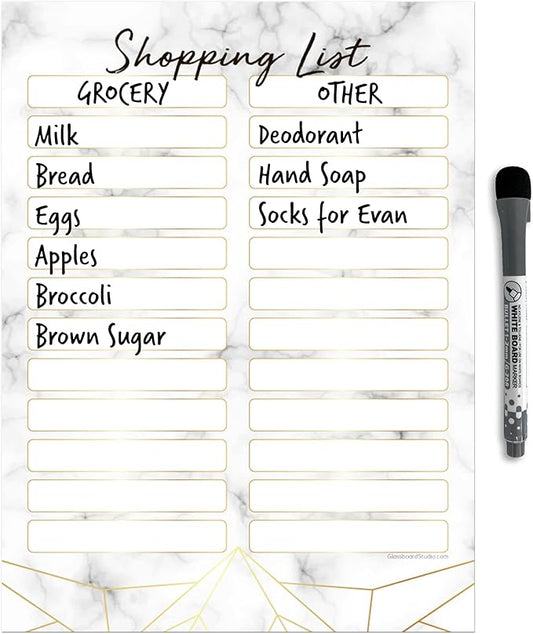 Shopping List
GROCERY
OTHER
Milk
Bread
Eggs
Apples
Broccoli
Brown Sugar
Deodorant
Hand Soap
Socks for Evan
GlassboardStudio.com
WHITE BOARD
MARKER